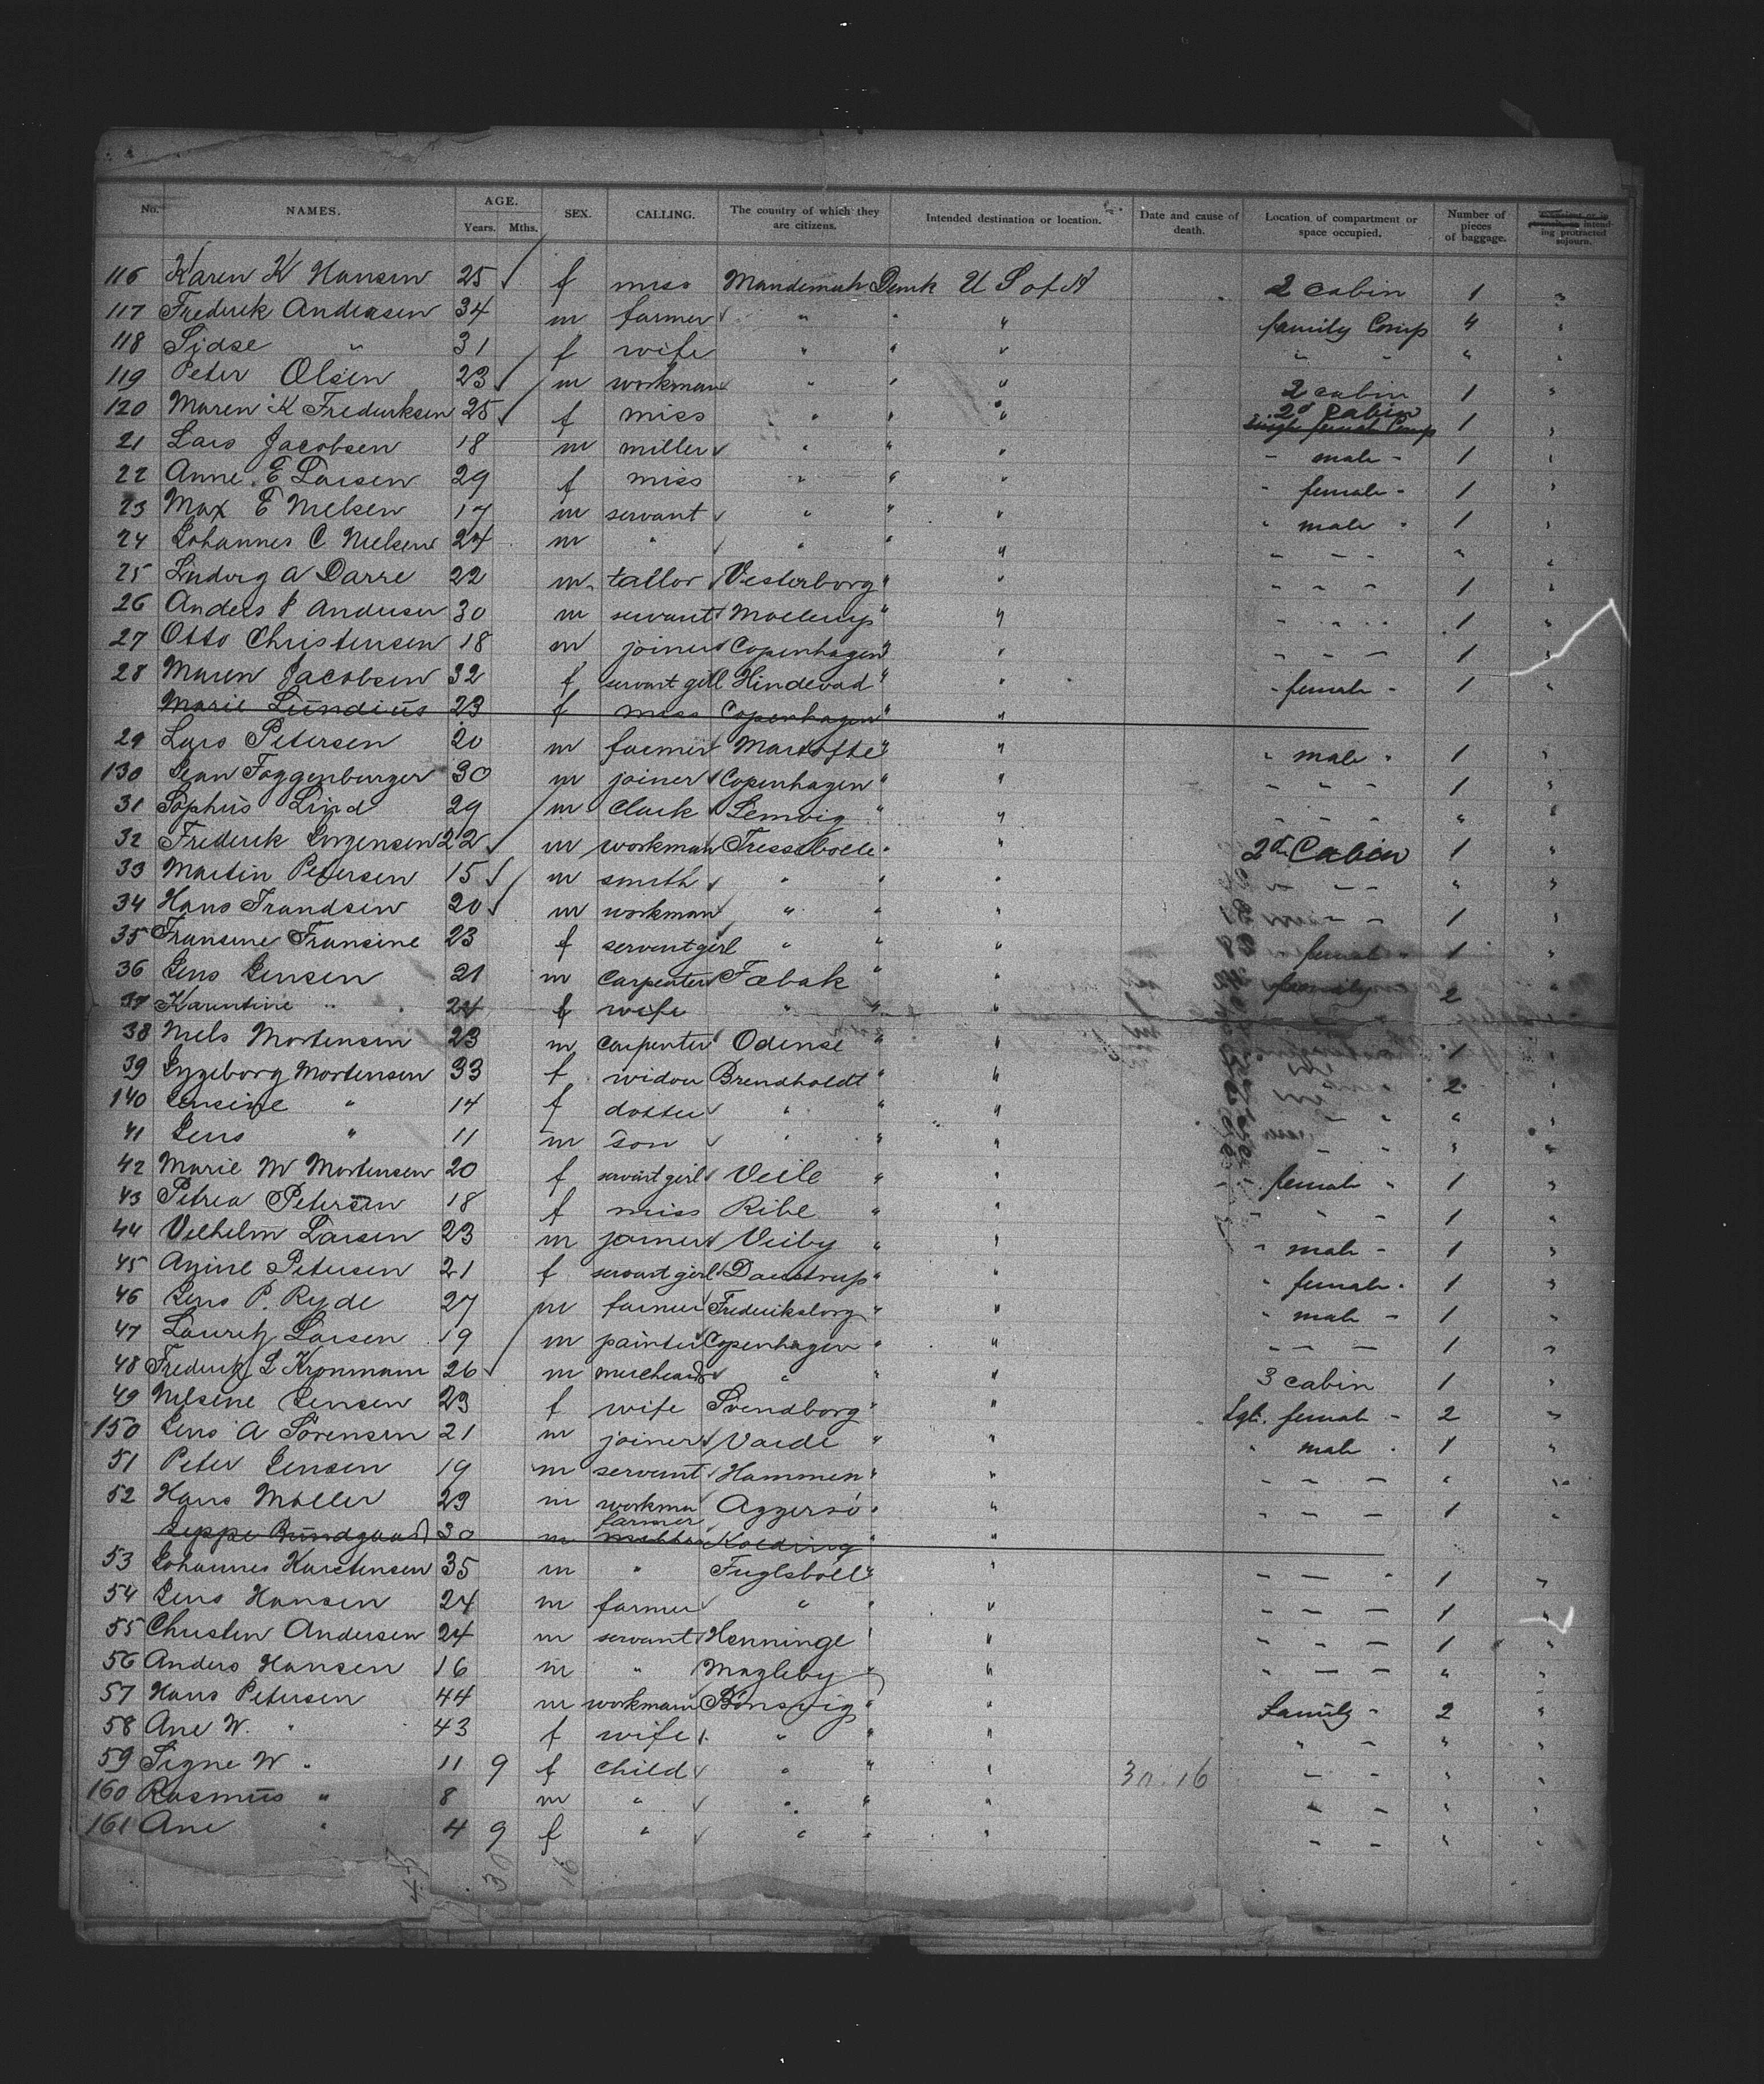 No. NAMES. AGE. Years. Mths. SEX. CALLING. The country of which they are citizens. Intended destination or location. Date and cause of death. Location of compartment or space occupied. Number of pieces of baggage.
116 Karen K Hansen 25 f miss Denmk U S of A 2 cabin 1
117 Frederik Andersen 34 m farmer " " " family Comp 4
118 Sidse " 31 f wife " " " " " "
119 Peter Olsen 23 m workman " " " 2 cabin 1
120 Maren K Frederiksen 25 f miss " " " 2d Cabin 1
21 Lars Jacobsen 18 m miller " " " - male - 1
22 Anne E Larsen 29 f miss " " " - female - 1
23 Max E Nielsen 17 m servant " " " " male " 1
24 Johannes C Nielsen 24 m " " " " - - - "
25 Ludvig A Darre 22 m tailor Vesterborg " " - - - 1
26 Anders P Andersen 30 m servant " " - - - 1
27 Otto Christensen 18 m joiner Copenhagen " " - - - 1
28 Maren Jacobsen 32 f servant girl Hindevad " " - female - 1
Marie Lundius 23 f miss Copenhagen " "
29 Lars Petersen 20 m farmer Martofte " " " male " 1
130 Jean Toggenburger 30 m joiner Copenhagen " " - - - 1
31 Sophus Lind 29 m Clark Lemvig " " - - - "
32 Frederik Jorgensen 22 m workman " " 2d Cabin 1
33 Martin Petersen 15 m smith " " " - - - "
34 Hans Frandsen 20 m workman " " " - - 1
35 Fransine Fransine 23 f servent girl " " " female " 1
36 Jens Jensen 21 m Carpenter Fœbak " " family 2
37 Karentine " 24 f wife " " "
38 Niels Mortensen 23 m Carpenter Odense " " 1
39 Ingeborg Mortensen 33 f widow Brendholdt " " 2
140 Jensine " 14 f " " " - " "
41 Jens " 11 m son " " " - - "
42 Marie M Mortensen 20 f servant girl Veile " " - female " 1
43 Petrea Petersen 18 f miss Ribe " " - - - 1
44 Vilhelm Larsen 23 m joiner Veiby " " - male - 1
45 Anine Petersen 21 f servant girl Daustrup " " " female " 1
46 Jens P. Ryde 27 m farmer Frederiksborg " " " male - 1
47 Lauritz Larsen 19 m painter Copenhagen " " - - - 1
48 Frederik L Kronmann 26 m " " " 3 cabin 1
49 Nilsine Jensen 23 f wife Svendborg " " Sgl. female - 2
150 Jens A Sörensen 21 m joiner Varde " " " male " 1
51 Peter Jensen 19 m servant Hammen " " - - - "
52 Hans Möller 29 m workma Aggersö " " - - - 1
Jeppe Bundgaard 30 m farmer Kolding " "
53 Johannes Karstensen 35 m " Fuglsböll " " - - " 1
54 Jens Hansen 24 m farmer " " " - - - 1
55 Christen Andersen 24 m servant Henninge " " - - - 1
56 Anders Hansen 16 m " Magleby " " - - - "
57 Hans Petersen 44 m workman Bönsvig " " Family - 2
58 Ane W. " 43 f wife " " " " - "
59 Signe W " 11 9 f child " " " 30. 16 - - "
160 Rasmus " 8 m " " " " - - "
161 Ane " 4 9 f " " " " - - "
45 30 16